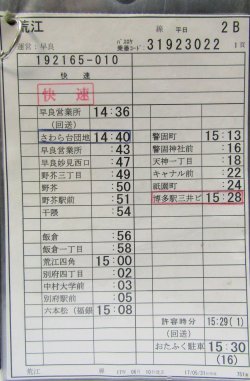 荒江 線 平日 2B
運営:早良 乗番コード: 31923022 1頁
192165-010
快速
快速
早良営業所 14:36
(回送)
さわら台団地 14:40 警固町 15:13
早良営業所 :43 警固神社前 :16
早良妙見西口 :47 天神一丁目 :18
野芥三丁目 :49 キャナル前 :22
野芥 :50 祇園町 :24
野芥駅前 :51 博多駅三井ビ 15:28
干隈 :54
飯倉 :56
飯倉一丁目 :58
荒江四角 15:00
別府四丁目 :02
中村大学前 :03
別府駅前 :05
六本松(福銀 15:08
許容時分 15:29(1)
(回送)
おたふく駐車 15:30
(16)
荒江